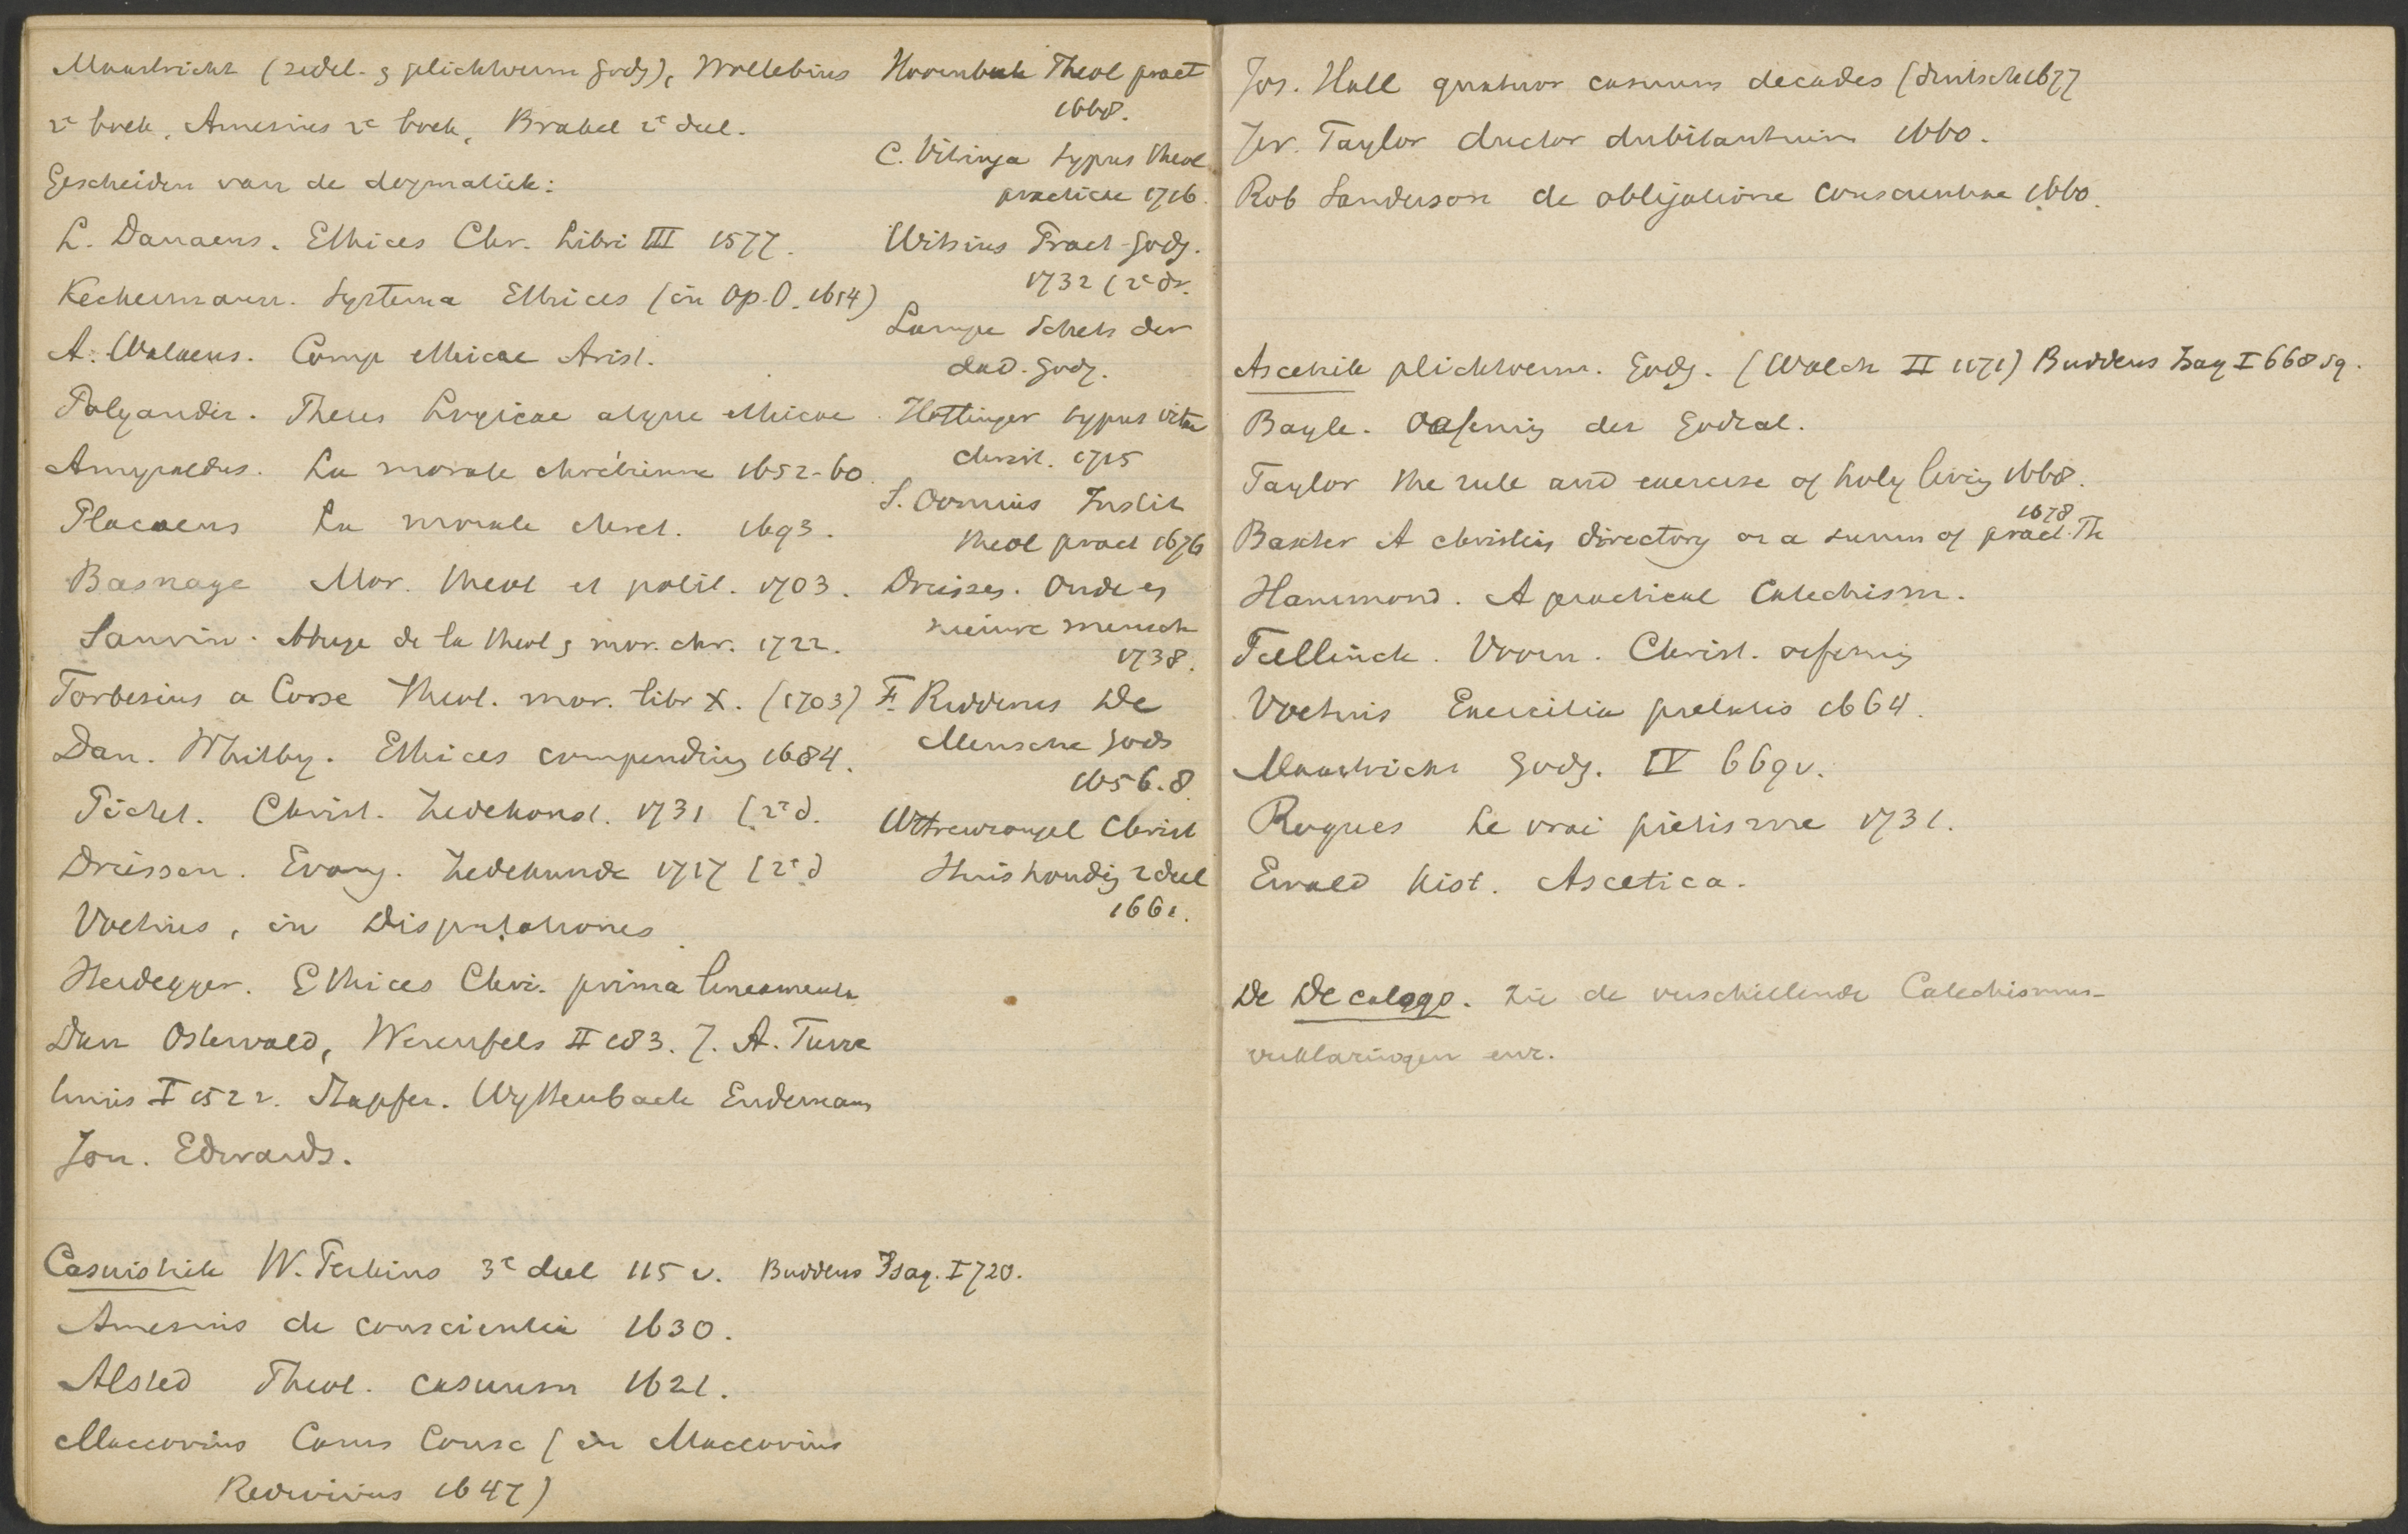 Maastricht (zedel. & plichtverm godz), Wollebius
2e boek, Amesius 2e boek, Brakel 2e deel.
Gescheiden van de dogmatiek:
L. Danaeus. Ethices Chr. Libri III 1577.
Keckermann. Systema Ethices (in Op. O. 1614)
A. Walaeus. Comp ethicae Arist.
Polyander. Theses Logicae atque ethicae
Amyraldus. La morale chrétienne 1652-60
Placaeus La morale chret. 1693.
Basnage Mor. theol et polit. 1703.
Saurin. Abrege de la theol & mor. chr. 1722.
Forbesius a Corse Theol. mor. libr X. (1703)
Dan. Whitby. Ethices compendium 1684.
Pictet. Christ. Zedekonst. 1731 (2e d.
Driessen. Evang. Zedekunde 1717 (2e d
Voetius, in Disputationes
Heidegger. Ethices Chr. prima lineamenta
Dan Osterwald, Werenfels II 183. J. A. Turre
tinus I 1522. Stapfer. Wyttenbach Endemann
Jon. Edwards.
Casuistiek W. Perkins 3e deel 115 v. Buddeus Isag. I 720.
Amesius de conscientia 1630.
Alsted Theol. casuum 1621.
Maccovius Casus Consc (in Maccovius
Redivivus 1647)
Hoornbeek Theol pract
1668.
C. Vitringa typus theol
practicae 1716.
Witsius Pract-godg.
1732 (2e dr.
Lampe Schets der
dad. godg.
Hottinger typus vitae
christ. 1715
S. Oomius Instit
theol pract 1676
Driessen. Oude en
nieuwe mensch
1738.
F. Ridderus De
Mensche Gods
1656.8
Wttrewrongel Christ
Huishoudig 2 deel
1661.
Jos. Hall quatuor casuum decades (deutsch 1677
Jer. Taylor ductor dubitantium 1660.
Rob Sanderson de obligatione conscientiae 1660.
Ascetiek plichtverm. Godg. (Walch II 1171) Buddeus Isag I 668 sq.
Bayle. Oefening der Godzal.
Taylor the rule and exercise of holy living 1668.
1678
Baxter A christian directory or a summ of pract. Th
Hammond. A practical Catechism.
Teellinck. Voorn. Christ. oefening
Voetius Exercitia pietatis 1664.
Maastricht Godg. IV 669 v.
Roques Le vrai piétisme 1731.
Ewald hist. Ascetica.
De Decalogo. Zie de verschillende Catechismus-
verklaringen enz.